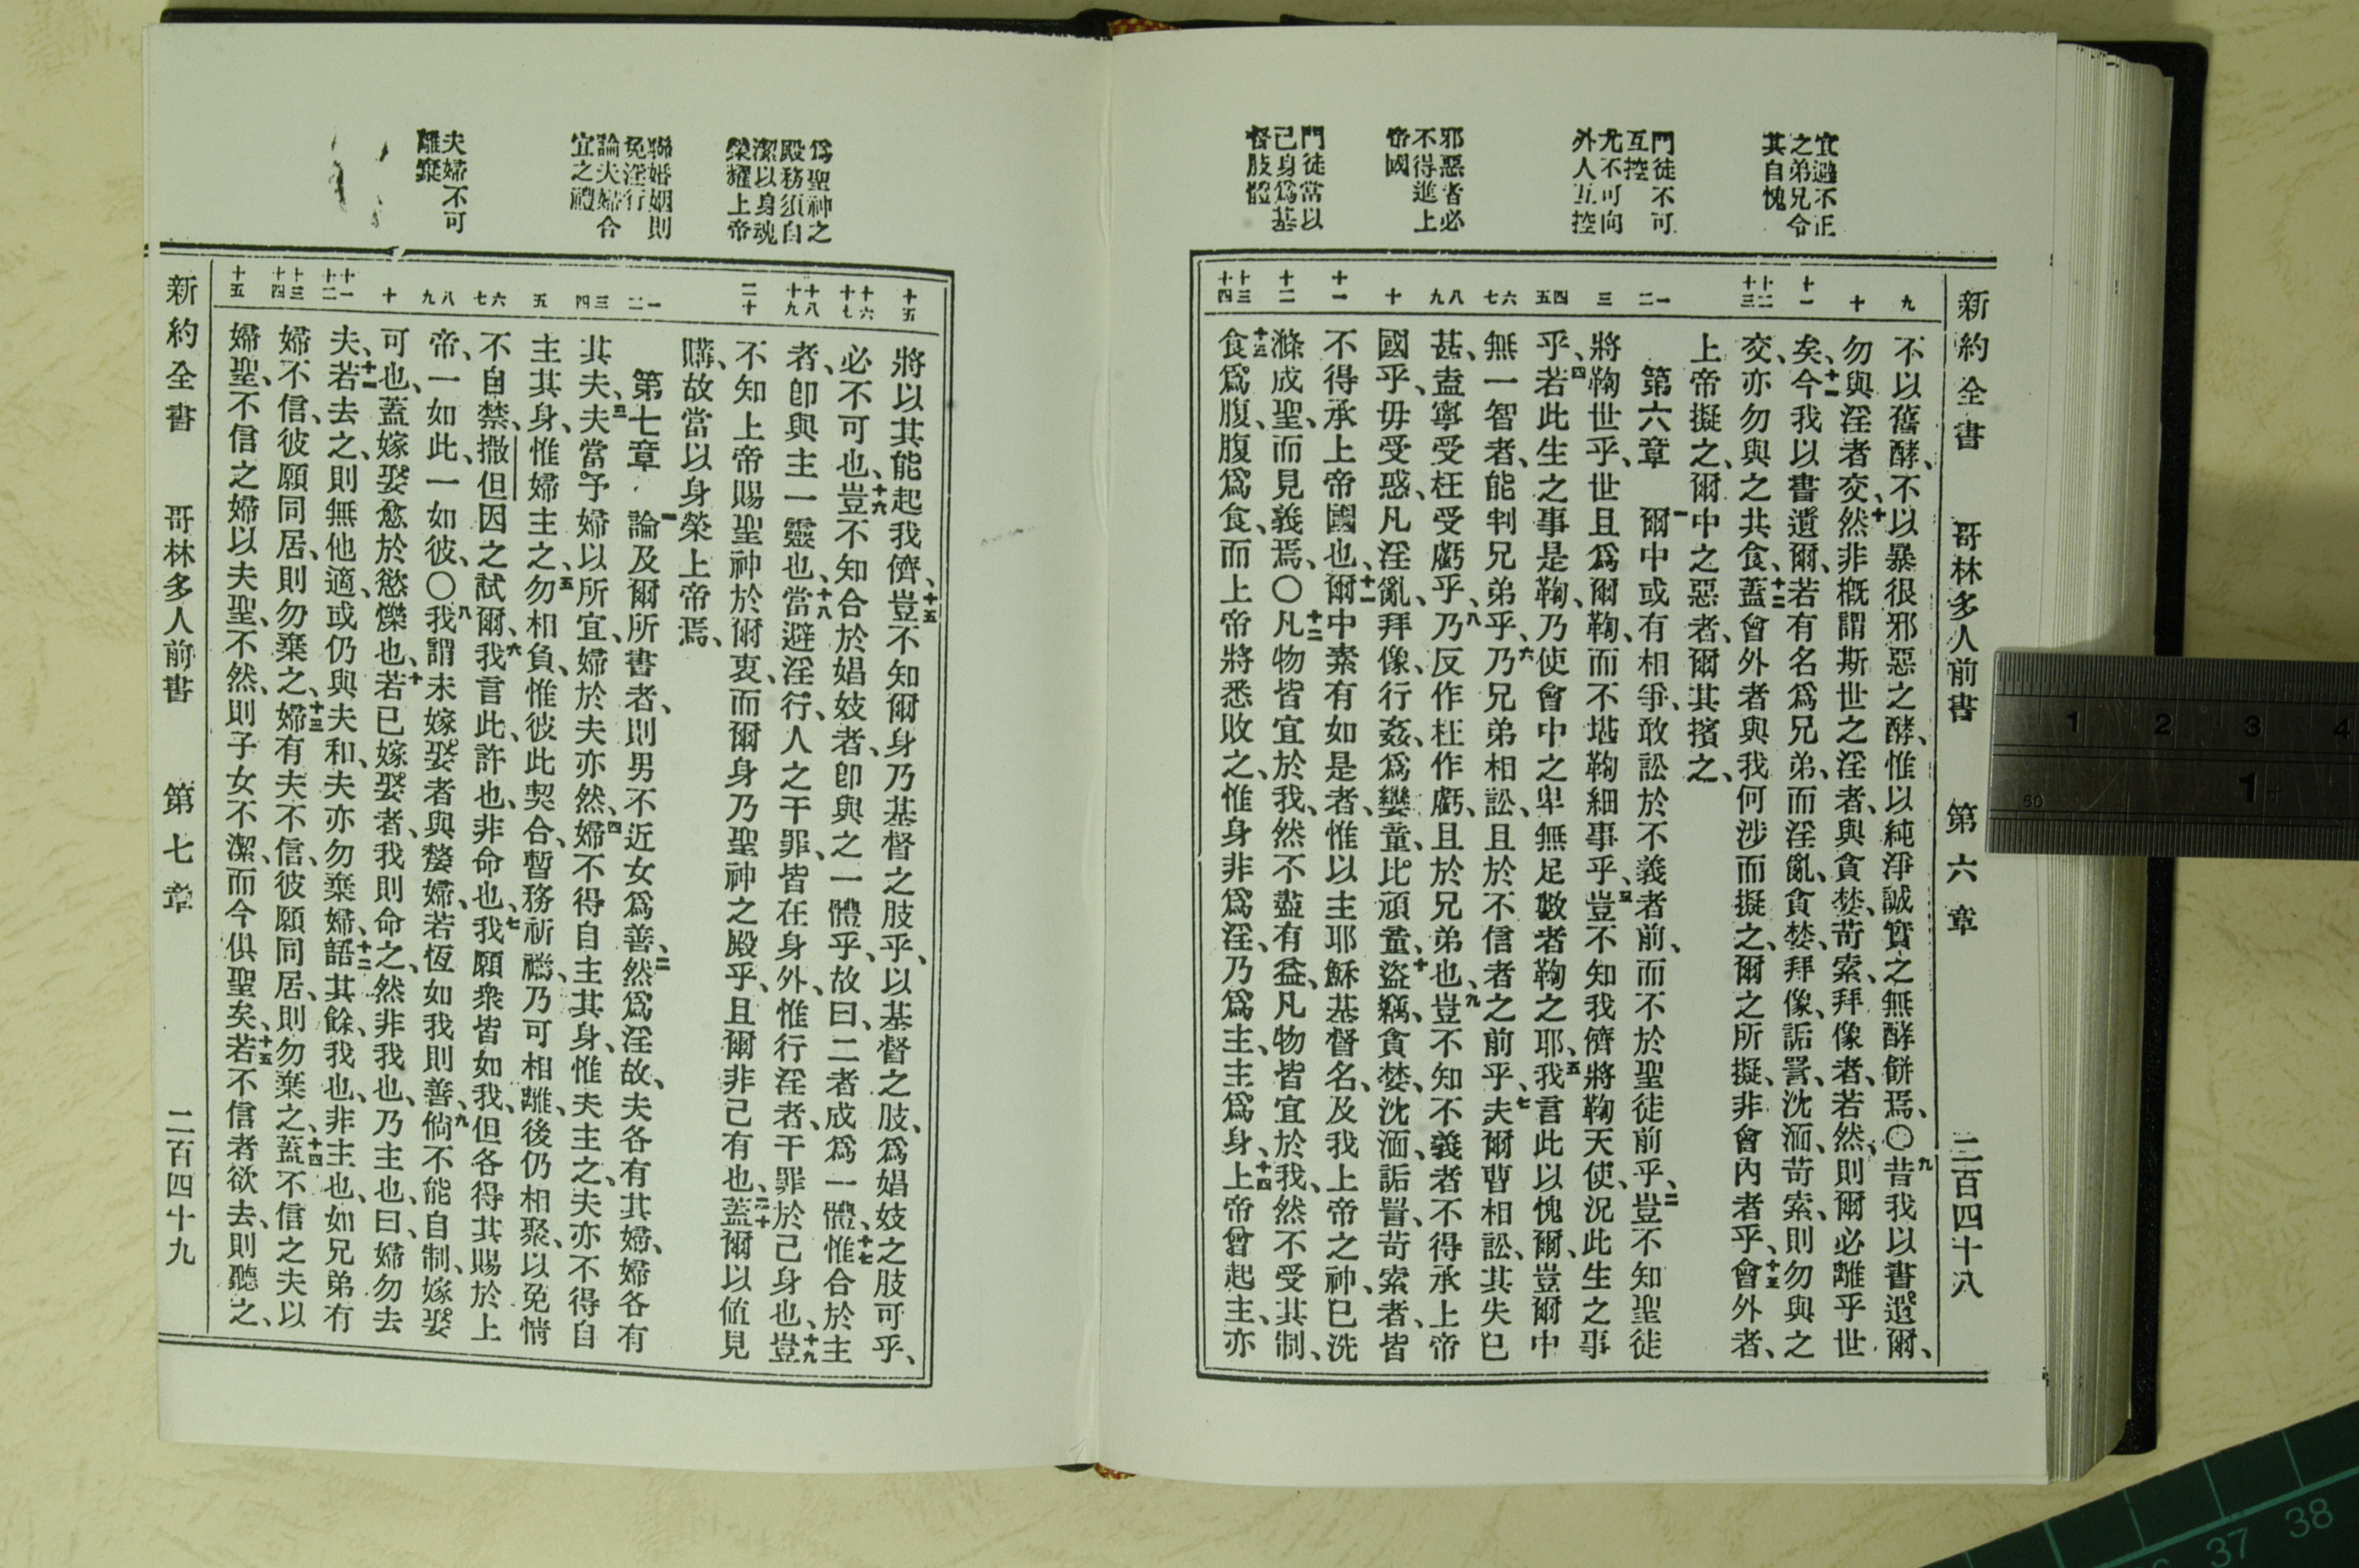 新約全書 哥林多人前書 第六章 二百四十八
宜避不正
之弟兄令
其自愧
門徒不可
互控
尤不可向
外人互控
邪惡者必
不得進上
帝國
門徒當以
己身爲基
督肢體
九
十
十一
十二 十三
一 二
三
四 五
六 七
八 九
十
十一
十二
十三 十四
不以舊酵、不以暴很邪惡之酵、惟以純淨誠實之無酵餅焉、〇九昔我以書遺爾、
勿與淫者交、十然非概謂斯世之淫者、與貪婪、苛索、拜像者、若然、則爾必離乎世
矣、十一今我以書遺爾、若有名爲兄弟、而淫亂、貪婪、拜像、詬詈、沈湎、苛索、則勿與之
交、亦勿與之共食、十二蓋會外者與我何涉而擬之、爾之所擬、非會內者乎、十三會外者、
上帝擬之、爾中之惡者、爾其擯之、
第六章 一爾中或有相爭、敢訟於不義者前、而不於聖徒前乎、二豈不知聖徒
將鞫世乎、世且爲爾鞫、而不堪鞫細事乎、三豈不知我儕將鞫天使、況此生之事
乎、四若此生之事是鞫、乃使會中之卑無足數者鞫之耶、五我言此以愧爾、豈爾中
無一智者、能判兄弟乎、六乃兄弟相訟、且於不信者之前乎、七夫爾曹相訟、其失已
甚、盍寧受枉受虧乎、八乃反作枉作虧、且於兄弟也、九豈不知不義者不得承上帝
國乎、毋受惑、凡淫亂、拜像、行姦、爲孌童、比頑童、十盜竊、貪婪、沈湎、詬詈、苛索者、皆
不得承上帝國也、十一爾中素有如是者、惟以主耶穌基督名、及我上帝之神、已洗
滌成聖、而見義焉、〇十二凡物皆宜於我、然不盡有益、凡物皆宜於我、然不受其制、
十三食爲腹、腹爲食、而上帝將悉敗之、惟身非爲淫、乃爲主、主爲身、十四上帝曾起主、亦
爲聖神之
殿務須自
潔以身魂
榮耀上帝
聯婚姻則
免淫行
論夫婦合
宜之禮
夫婦不可
離棄
十五
十六 十七
十八 十九
二十
一 二
三 四
五
六 七
八 九
十
十一 十二
十三 十四
十五
將以其能起我儕、十五豈不知爾身乃基督之肢乎、以基督之肢、爲娼妓之肢可乎、
必不可也、十六豈不知合於娼妓者、卽與之一體乎、故曰、二者成爲一體、十七惟合於主
者、卽與主一靈也、十八當避淫行、人之干罪、皆在身外、惟行淫者、干罪於己身也、十九豈
不知上帝賜聖神於爾衷、而爾身乃聖神之殿乎、且爾非己有也、二十蓋爾以値見
購、故當以身榮上帝焉、
第七章 一論及爾所書者、則男不近女爲善、二然爲淫故、夫各有其婦、婦各有
其夫、三夫當予婦以所宜、婦於夫亦然、四婦不得自主其身、惟夫主之、夫亦不得自
主其身、惟婦主之、五勿相負、惟彼此契合、暫務祈禱、乃可相離、後仍相聚、以免情
不自禁、撒但因之試爾、六我言此、許也、非命也、七我願衆皆如我、但各得其賜於上
帝、一如此、一如彼、〇八我謂未嫁娶者與嫠婦、若恆如我則善、九倘不能自制、嫁娶
可也、蓋嫁娶愈於慾爍也、十若已嫁娶者、我則命之、然非我也、乃主也、曰、婦勿去
夫、十一若去之、則無他適、或仍與夫和、夫亦勿棄婦、十二語其餘、我也、非主也、如兄弟有
婦不信、彼願同居、則勿棄之、十三婦有夫不信、彼願同居、則勿棄之、十四蓋不信之夫以
婦聖、不信之婦以夫聖、不然、則子女不潔、而今俱聖矣、十五若不信者欲去、則聽之、
新約全書 哥林多人前書 第七章 二百四十九
1 2 3 4
1
50
37 38